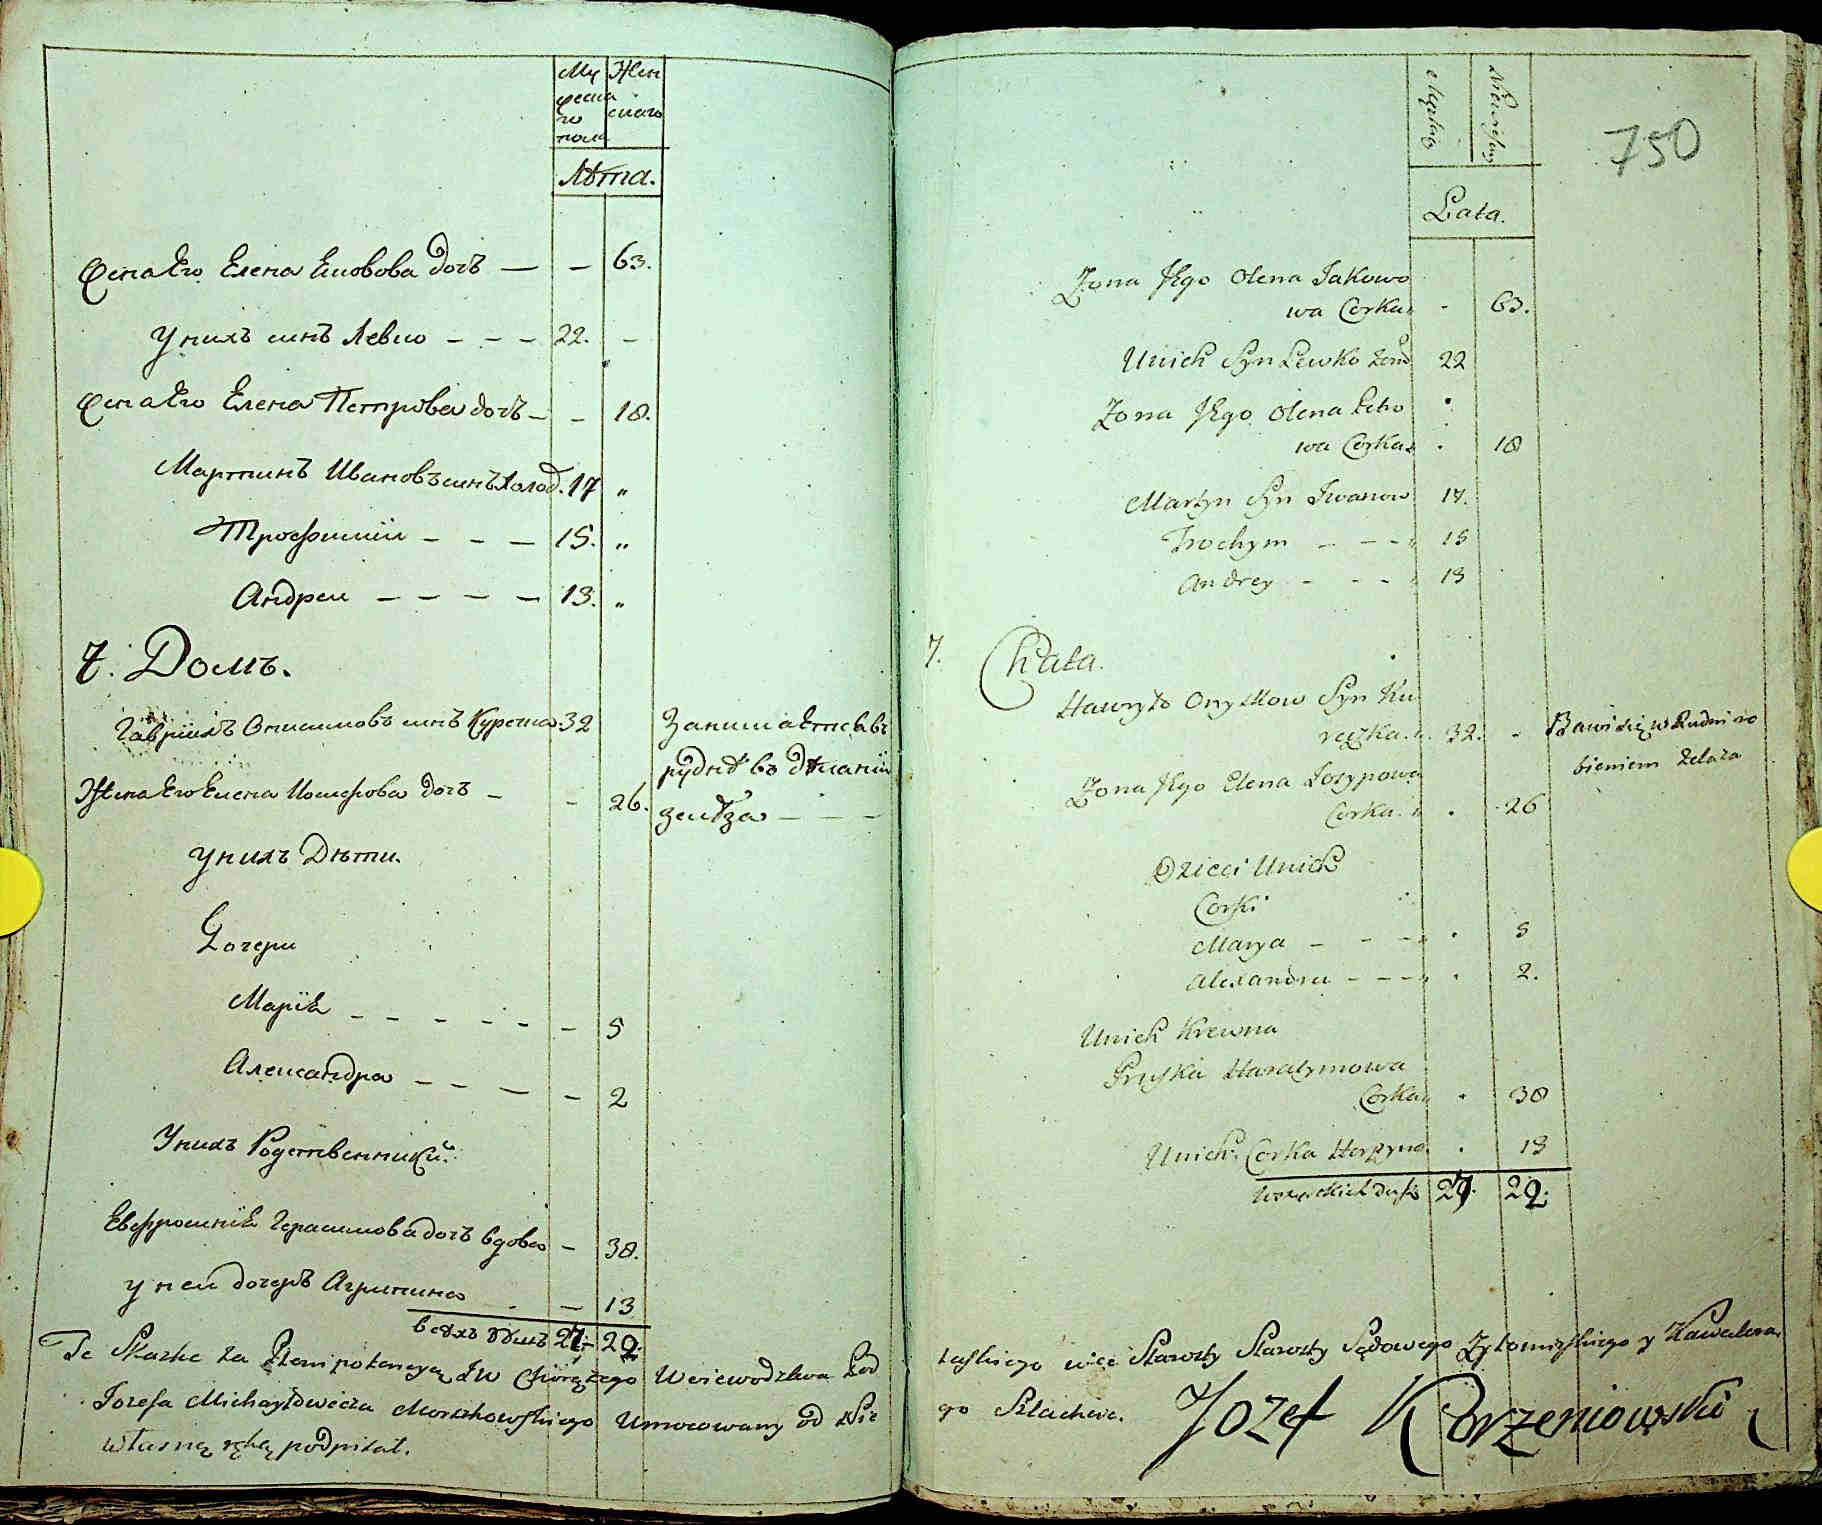 Му
ческа
го
пола
Жен
скаго
Лѣта.
Жена Его Елена Яковова дочь — — 63.
У нихъ синъ Левко - - - 22. -
Жена Его Елена Петрова дочь - - 18.
Мартинъ Ивановъ синъ Холод. 17 „
Трофимий - - - 15. „
Андрей - - - - 13. „
7. Домъ.
Гавриилъ Онисимовъ синъ Курочка. 32
Занимаетсь въ
рудне въ деланий
Жена Его Елена Иосифова дочь - - 26.
У нихъ Дѣти.
Дочери
Мария - - - - - - 5
Александра - - - - 2
У нихъ Родственники.
Евфросиния Герасимова дочь вдова - 38.
у ней дочерь Агрипина - - 13
всѣхъ душъ 27. 29.
Te Skazke za Plenipotencyą JW Chorążego Wojewodztwa Pod
Jozefa Michayłowicza Morzkowskiego Umocowany od Nie
własną ręką podpisał.
750
Męskiey
Niewiesciey
Lata.
Zona Jego Olena Jakowo
wa Corka „ - 63.
Unich Syn Lewko 22
Zona Jego Olena Petro
wa Corka „ . 18
Martyn Syn Iwanow 17.
Trochym - - - „ 15
Andrey - - - „ 13
7. Chata.
Hawryło Onyskow Syn Ku
roczka. „ 32. -
Bawi się w Rudni ro
bieniem Zelaza
Zona Jego Elena Jozypowa
Corka. „ . 26
Dzieci Unich
Corki
Marya - - - „ . 5
Alexandra - - - „ . 2.
Unich Krewna
Pruska Harasymowa
Corka „ . 38
Unich Corka Horpyna. . 13
Wszystkich dusz 27. 29.
wice Starosty Starosty Sądowego Zytomirskiego y Kawalera
go Szlachcic. Jozef Korzeniowski